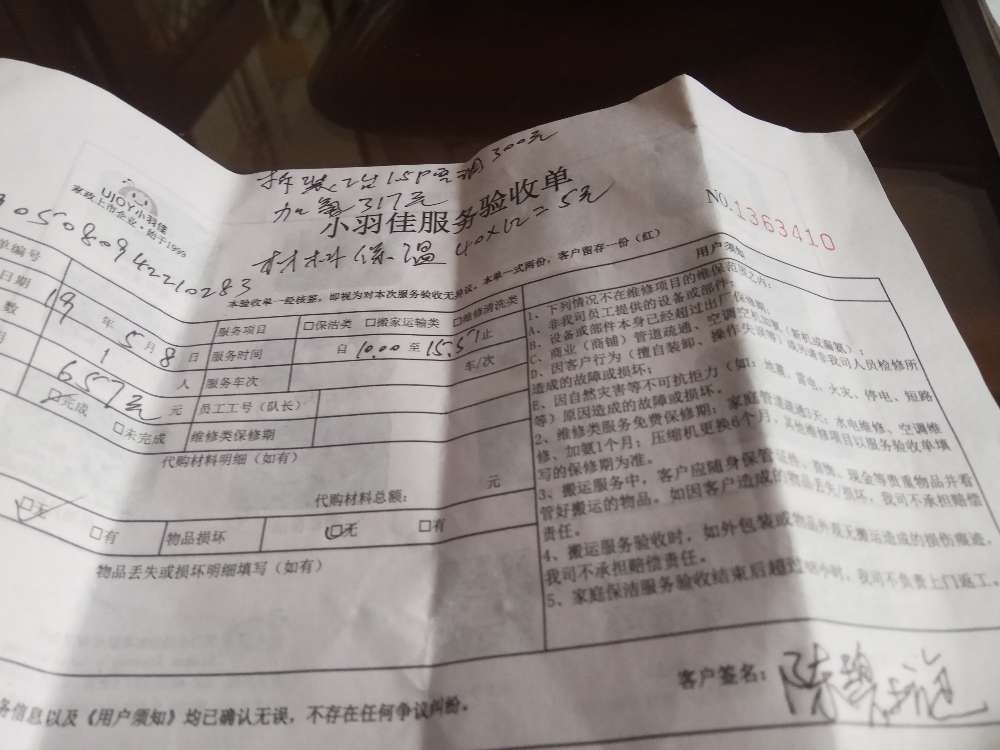 拆装2台1.5P空调300元
加氟317元
材料保温40×12=5元
UJOY小羽佳
家政上市企业·始于1999
小羽佳服务验收单
NO.1363410
050809422210283
本验收单一经核签,即视为对本次服务验收无异议,本单一式两份,客户留存一份(红)
单编号
服务项目 □保洁类 □搬家运输类 □维修清洗类
日期 19年5月8日 服务时间 自10:00至15:57止
数 1 人 服务车次 车/次
657元 元 员工工号(队长)
□完成 □未完成 维修类保修期
代购材料明细(如有)
代购材料总额: 元
□无 □有 物品损坏 □无 □有
物品丢失或损坏明细填写(如有)
用户须知
1、下列情况不在维修项目的维保范围之内:
A、非我司员工提供的设备或部件;
B、设备或部件本身已经超过出厂保修期;
C、商业(商铺)管道疏通、空调空加氟(新机或漏氟);
D、因客户行为(擅自装卸、操作失误等)或所请非我司人员检修所
造成的故障或损坏;
E、因自然灾害等不可抗拒力(如:地震、雷电、火灾、停电、短路
等)原因造成的故障或损坏。
2、维修类服务免费保修期:家庭管道疏通3天;水电维修、空调维
修、加氨1个月;压缩机更换6个月,其他维修项目以服务验收单填
写的保修期为准。
3、搬运服务中,客户应随身保管证件、首饰、现金等贵重物品并看
管好搬运的物品。如因客户造成的物品丢失/损坏,我司不承担赔偿
责任。
4、搬运服务验收时,如外包装或物品外观无搬运造成的损伤痕迹,
我司不承担赔偿责任。
5、家庭保洁服务验收结束后超过48小时,我司不负责上门返工。
客户签名:
务信息以及《用户须知》均已确认无误,不存在任何争议纠纷。